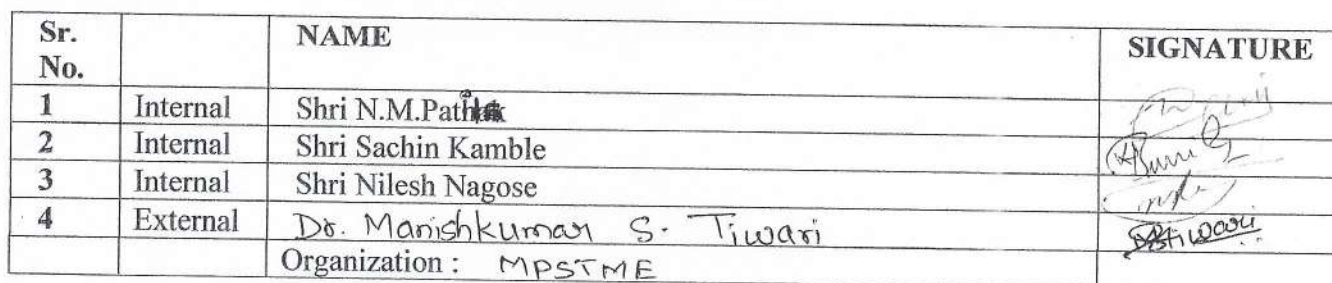 Sr. No. NAME SIGNATURE
1 Internal Shri N.M.Patil
2 Internal Shri Sachin Kamble
3 Internal Shri Nilesh Nagose
4 External Dr. Manishkumar S. Tiwari
Organization : MPSTME